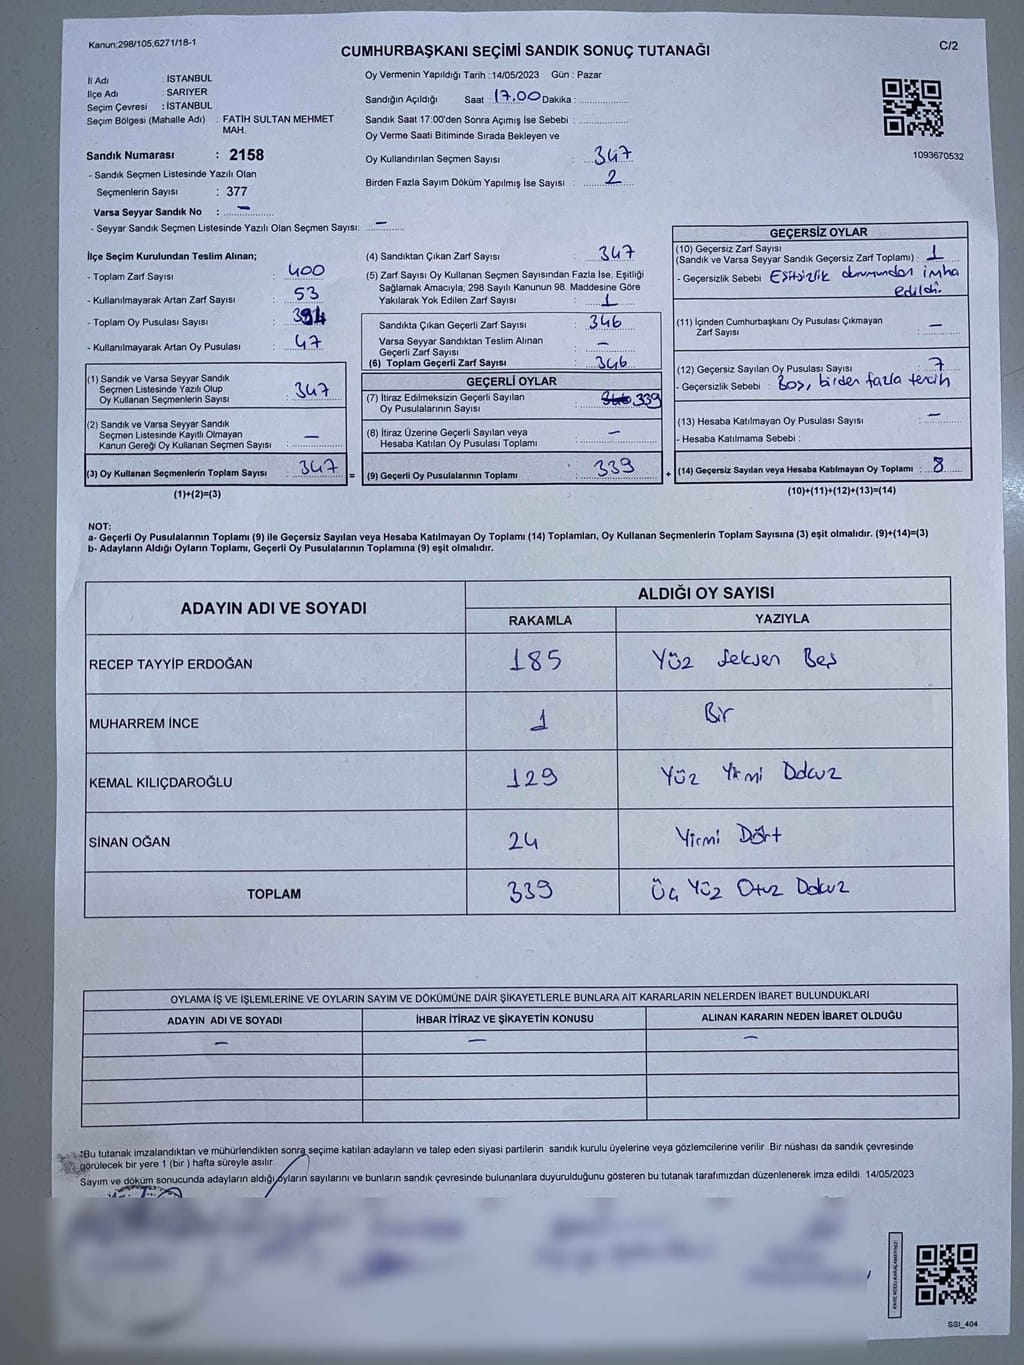 Kanun;298/105,6271/18-1
CUMHURBAŞKANI SEÇİMİ SANDIK SONUÇ TUTANAĞI
C/2
İl Adı : İSTANBUL
İlçe Adı : SARIYER
Seçim Çevresi : İSTANBUL
Seçim Bölgesi (Mahalle Adı) : FATİH SULTAN MEHMET
MAH.
Sandık Numarası : 2158
- Sandık Seçmen Listesinde Yazılı Olan
Seçmenlerin Sayısı : 377
Varsa Seyyar Sandık No : —
- Seyyar Sandık Seçmen Listesinde Yazılı Olan Seçmen Sayısı: —
Oy Vermenin Yapıldığı Tarih :14/05/2023 Gün : Pazar
Sandığın Açıldığı Saat :17.00 Dakika :
Sandık Saat 17:00'den Sonra Açımış İse Sebebi :
Oy Verme Saati Bitiminde Sırada Bekleyen ve
Oy Kullandırılan Seçmen Sayısı : 347
Birden Fazla Sayım Döküm Yapılmış İse Sayısı : 2
1093670532
İlçe Seçim Kurulundan Teslim Alınan;
- Toplam Zarf Sayısı : 400
- Kullanılmayarak Artan Zarf Sayısı : 53
- Toplam Oy Pusulası Sayısı : 394
- Kullanılmayarak Artan Oy Pusulası : 47
(1) Sandık ve Varsa Seyyar Sandık
Seçmen Listesinde Yazılı Olup
Oy Kullanan Seçmenlerin Sayısı : 347
(2) Sandık ve Varsa Seyyar Sandık
Seçmen Listesinde Kayıtlı Olmayan
Kanun Gereği Oy Kullanan Seçmen Sayısı : —
(3) Oy Kullanan Seçmenlerin Toplam Sayısı : 347 =
(1)+(2)=(3)
(4) Sandıktan Çıkan Zarf Sayısı : 347
(5) Zarf Sayısı Oy Kullanan Seçmen Sayısından Fazla İse, Eşitliği
Sağlamak Amacıyla; 298 Sayılı Kanunun 98. Maddesine Göre
Yakılarak Yok Edilen Zarf Sayısı : 1
Sandıkta Çıkan Geçerli Zarf Sayısı : 346
Varsa Seyyar Sandıktan Teslim Alınan
Geçerli Zarf Sayısı : —
(6) Toplam Geçerli Zarf Sayısı : 346
GEÇERLİ OYLAR
(7) İtiraz Edilmeksizin Geçerli Sayılan
Oy Pusulalarının Sayısı : 339
(8) İtiraz Üzerine Geçerli Sayılan veya
Hesaba Katılan Oy Pusulası Toplamı : —
(9) Geçerli Oy Pusulalarının Toplamı : 339 +
GEÇERSİZ OYLAR
(10) Geçersiz Zarf Sayısı
(Sandık ve Varsa Seyyar Sandık Geçersiz Zarf Toplamı) : 1
- Geçersizlik Sebebi : Eşitsizlik durumundan imha
edildi.
(11) İçinden Cumhurbaşkanı Oy Pusulası Çıkmayan
Zarf Sayısı : —
(12) Geçersiz Sayılan Oy Pusulası Sayısı : 7
- Geçersizlik Sebebi : Boş, birden fazla tercih
(13) Hesaba Katılmayan Oy Pusulası Sayısı : —
- Hesaba Katılmama Sebebi :
(14) Geçersiz Sayılan veya Hesaba Katılmayan Oy Toplamı : 8
(10)+(11)+(12)+(13)=(14)
NOT:
a- Geçerli Oy Pusulalarının Toplamı (9) ile Geçersiz Sayılan veya Hesaba Katılmayan Oy Toplamı (14) Toplamları, Oy Kullanan Seçmenlerin Toplam Sayısına (3) eşit olmalıdır. (9)+(14)=(3)
b- Adayların Aldığı Oyların Toplamı, Geçerli Oy Pusulalarının Toplamına (9) eşit olmalıdır.
ADAYIN ADI VE SOYADI
ALDIĞI OY SAYISI
RAKAMLA YAZIYLA
RECEP TAYYİP ERDOĞAN 185 Yüz Seksen Beş
MUHARREM İNCE 1 Bir
KEMAL KILIÇDAROĞLU 129 Yüz Yirmi Dokuz
SİNAN OĞAN 24 Yirmi Dört
TOPLAM 339 Üç Yüz Otuz Dokuz
OYLAMA İŞ VE İŞLEMLERİNE VE OYLARIN SAYIM VE DÖKÜMÜNE DAİR ŞİKAYETLERLE BUNLARA AİT KARARLARIN NELERDEN İBARET BULUNDUKLARI
ADAYIN ADI VE SOYADI İHBAR İTİRAZ VE ŞİKAYETİN KONUSU ALINAN KARARIN NEDEN İBARET OLDUĞU
— — —
*Bu tutanak imzalandıktan ve mühürlendikten sonra seçime katılan adayların ve talep eden siyasi partilerin sandık kurulu üyelerine veya gözlemcilerine verilir. Bir nüshası da sandık çevresinde
görülecek bir yere 1 (bir ) hafta süreyle asılır.
Sayım ve döküm sonucunda adayların aldığı oyların sayılarını ve bunların sandık çevresinde bulunanlara duyurulduğunu gösteren bu tutanak tarafımızdan düzenlenerek imza edildi. 14/05/2023
SSI_404